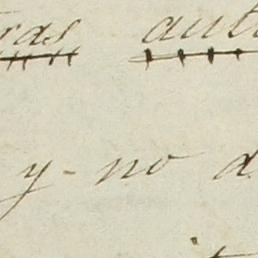 ras auto
y - no d